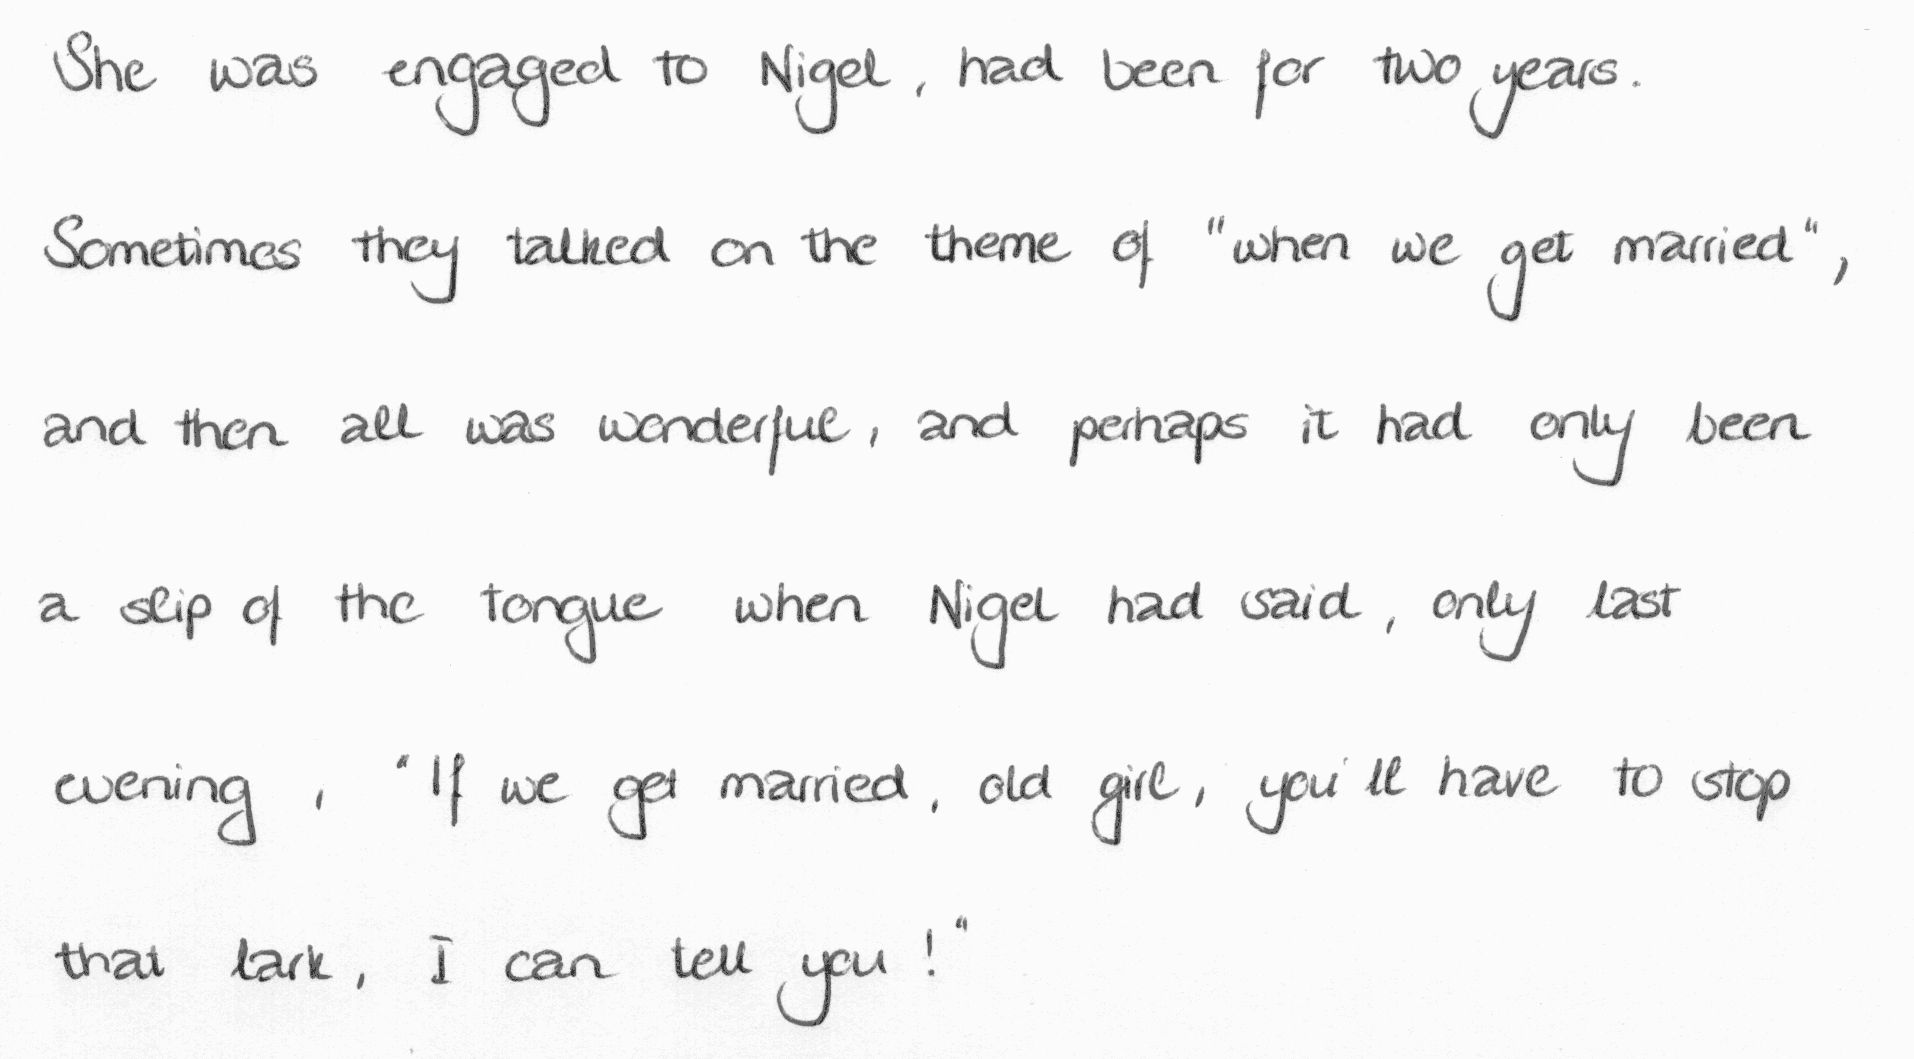 She was engaged to Nigel, had been for two years.
Sometimes they talked on the theme of "when we get married",
and then all was wonderful, and perhaps it had only been
a slip of the tongue when Nigel had said, only last
evening, "If we get married, old girl, you'll have to stop
that lark, I can tell you!"